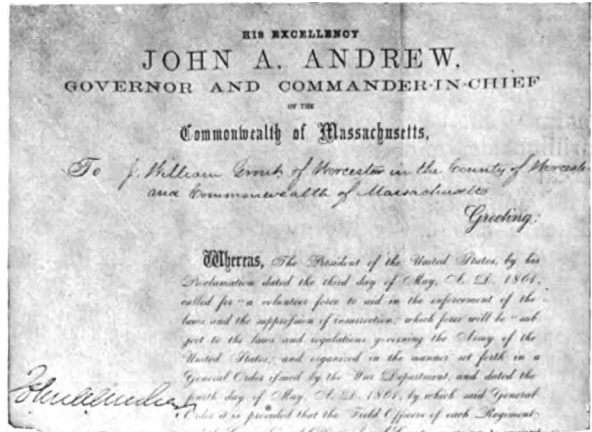 HIS EXCELLENCY
JOHN A. ANDREW,
GOVERNOR AND COMMANDER-IN-CHIEF
OF THE
Commonwealth of Massachusetts,
To J. William Grout of Worcester in the County of Worcester
and Commonwealth of Massachusetts
Greeting:
Whereas, The President of the United States, by his
Proclamation dated the third day of May, A. D. 1861,
called for "a volunteer force to aid in the enforcement of the
laws and the suppression of insurrection," which force will be "sub-
ject to the laws and regulations governing the Army of the
United States," and organized in the manner set forth in a
General Order issued by the War Department, and dated the
fourth day of May, A. D. 1861, by which said General
Order it is provided that the Field Officers of each Regiment